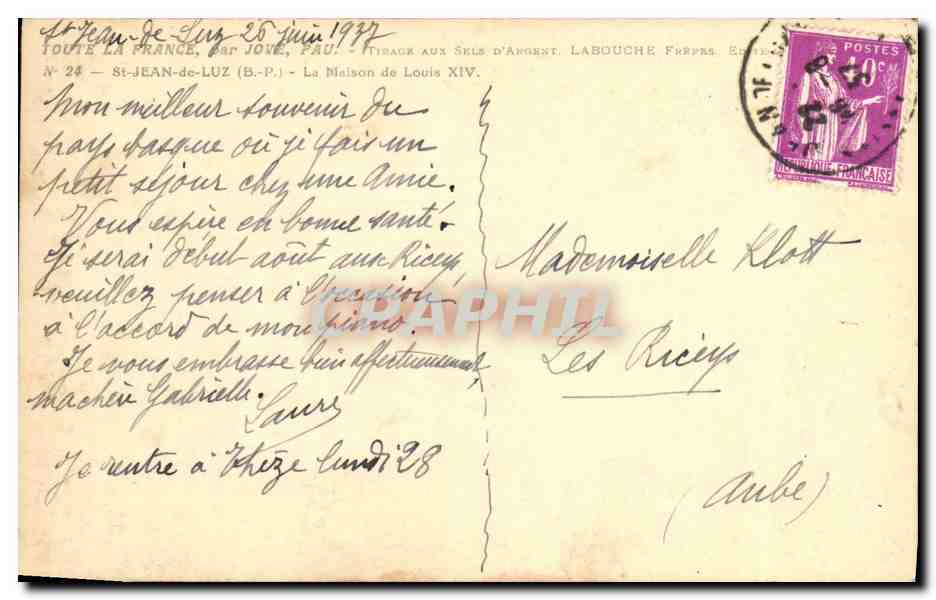 St Jean-de-Luz 26 juin 1937
TOUTE LA FRANCE, par JOVE, PAU. - TIRAGE AUX SELS D'ARGENT. LABOUCHE FRÈRES.
Nº 24 — St-JEAN-de-LUZ (B.-P.) - La Maison de Louis XIV.
Mon meilleur souvenir du
pays basque où je fais un
petit séjour chez une Amie.
Vous espère en bonne santé.
Je serai début août aux Riceys
veuillez penser à l'occasion
à l'accord de mon piano.
Je vous embrasse bien affectueusement
ma chère Gabrielle.
Laure
Je rentre à Thèze lundi 28
POSTES
40c
REPUBLIQUE FRANÇAISE
Mademoiselle Klott
Les Riceys
(Aube)
CPAPHIL